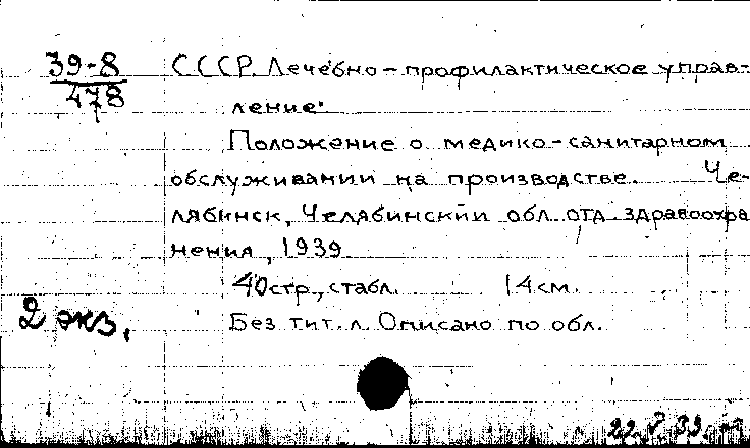 39-8
478
СССР. Лечебно-профилактическое управ-
ление.
Положение о медико-санитарном
обслуживании на производстве. Че-
лябинск, Челябинский обл. отд. здравоохра
нения, 1939
40 стр., с табл. 14 см.
2 экз.
Без тит. л. Описано по обл.